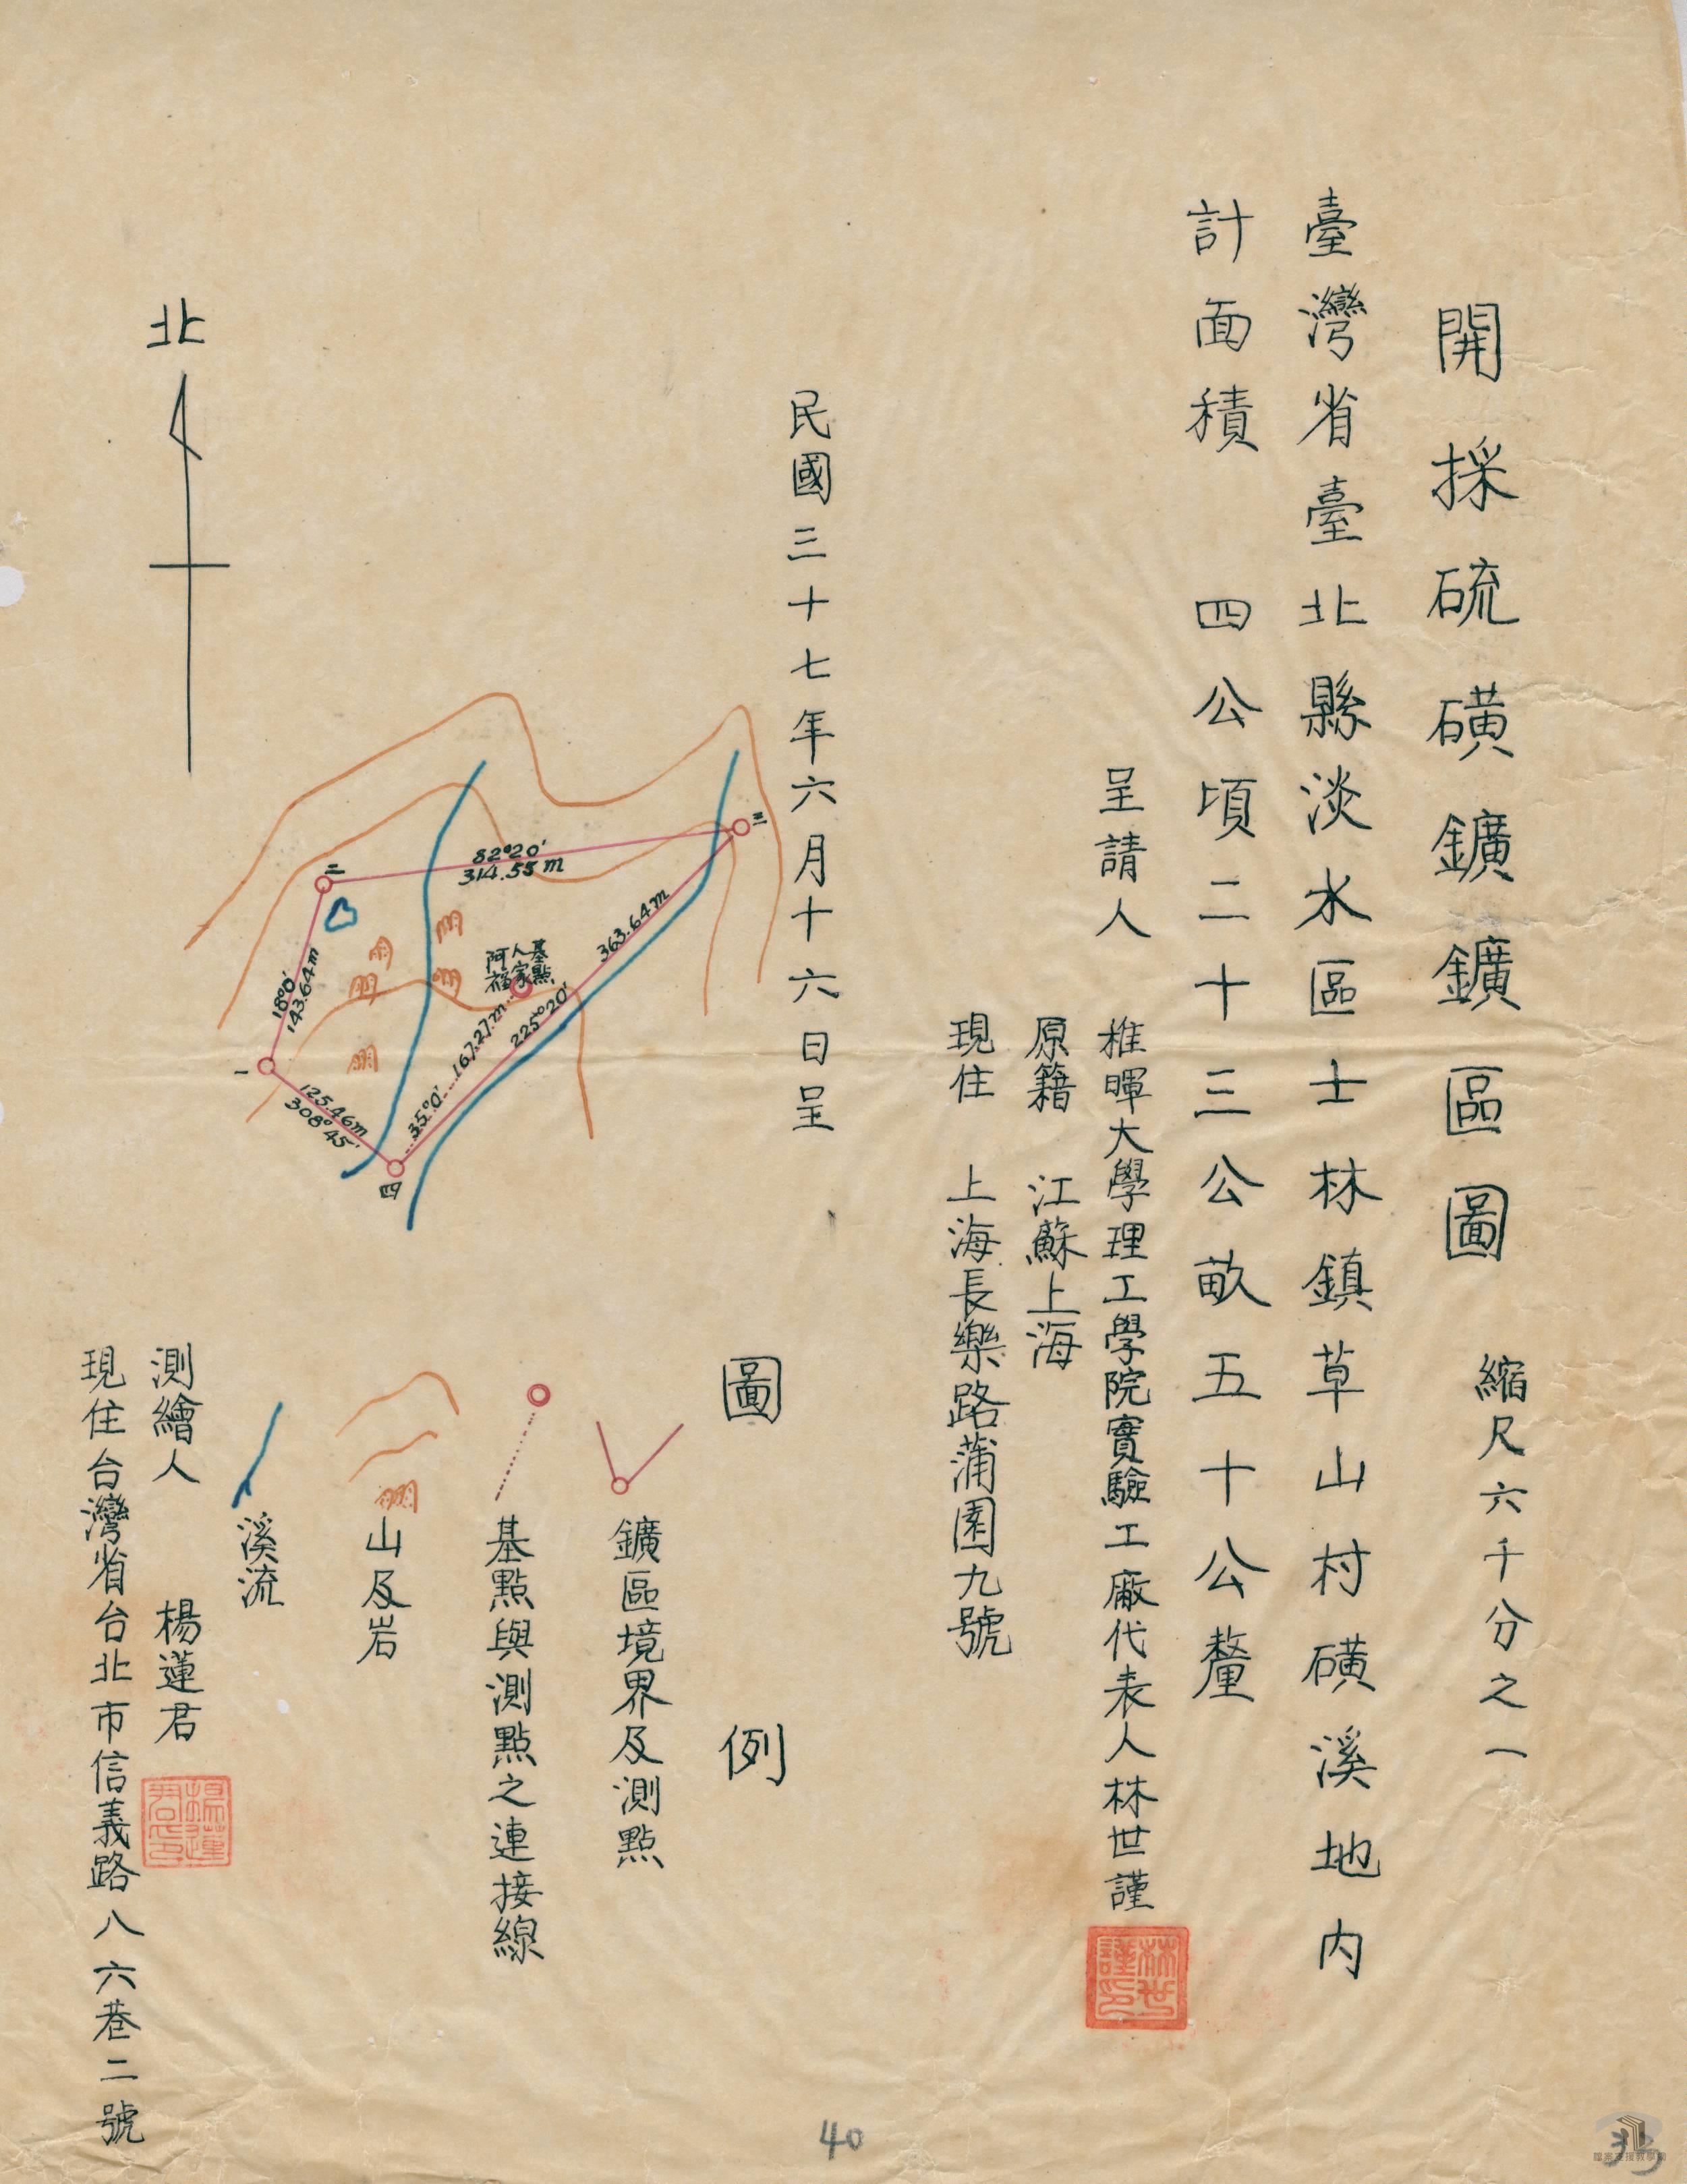 開採硫磺鑛鑛區圖　縮尺六千分之一
臺灣省臺北縣淡水區士林鎮草山村磺溪地內
計面積　四公頃二十三公畝五十公釐
呈請人　稚暉大學理工學院實驗工廠代表人林世謹
林世謹印
原籍　江蘇上海
現住　上海長樂路蒲園九號
民國三十七年六月十六日呈
北
三
二
82°20′
314.55m
18°0′
143.64m
一
125.46m
308°45′
四
363.64m
225°20′
基點
人家
阿福
167.27m
35°0′
圖例
鑛區境界及測點
基點與測點之連接線
山及岩
溪流
測繪人　楊蓮君
楊蓮君印
現住台灣省台北市信義路八六巷二號
40
檔案支援教學網